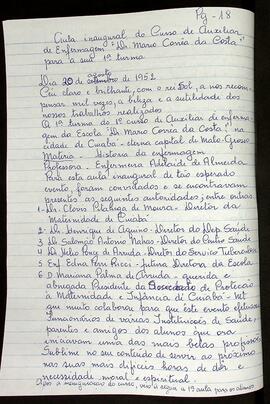 Pg - 18
Aula inaugural do Curso de Auxiliar
de Enfermagem "Dr. Mario Corrêa da Costa"
para a sua 1ª turma
agosto
Dia 20 de setembro de 1952
Céu claro e brilhante, com o rei Sol, a nos recom
pensar mil vezes, a beleza e a sutilidade dos
nossos trabalhos realizados
A 1ª turma do 1º curso de Auxiliar de enferma
gem da Escola "Dr. Mario Corrêa da Costa", na
cidade de Cuiabá - eterna capital de Mato-Grosso
Matéria - História da Enfermagem
Professora - Enfermeira Adelaide de Almeida
Para esta aula inaugural de tão esperado
evento, foram convidados e se encontravam
presentes as seguintes autoridades, entre outras
1 - Dr. Clovis Pitaluga de Moura - Diretor da
Maternidade de Cuiabá
2 - Dr. Henrique de Aquino - Diretor do Dep. Saúde
3 - Dr. Salomão Antonio Nahas - Diretor do Centro Saúde
4 - Dr. Hélio Ponce de Arruda - Diretor do Serviço Tuberculose
5 - Enf. Edna Perri Ricci - Ilustre Diretora da Escola
6 - D. Mariana Palma de Arruda - querida e
abnegada Presidente da Sociedade de Proteção
à Maternidade e Infância de Cuiabá - Mt
que muito colaborou para que este evento efetivasse
Funcionários de várias Instituições de Saúde,
parentes e amigos dos alunos que ora
iniciavam uma das mais belas profissões
Sublime no seu conteúdo de servir ao próximo
nas suas mais difíceis horas de dor e
necessidade moral e espiritual.
Após a inauguração do curso, veio a seguir a 1ª aula para os alunos